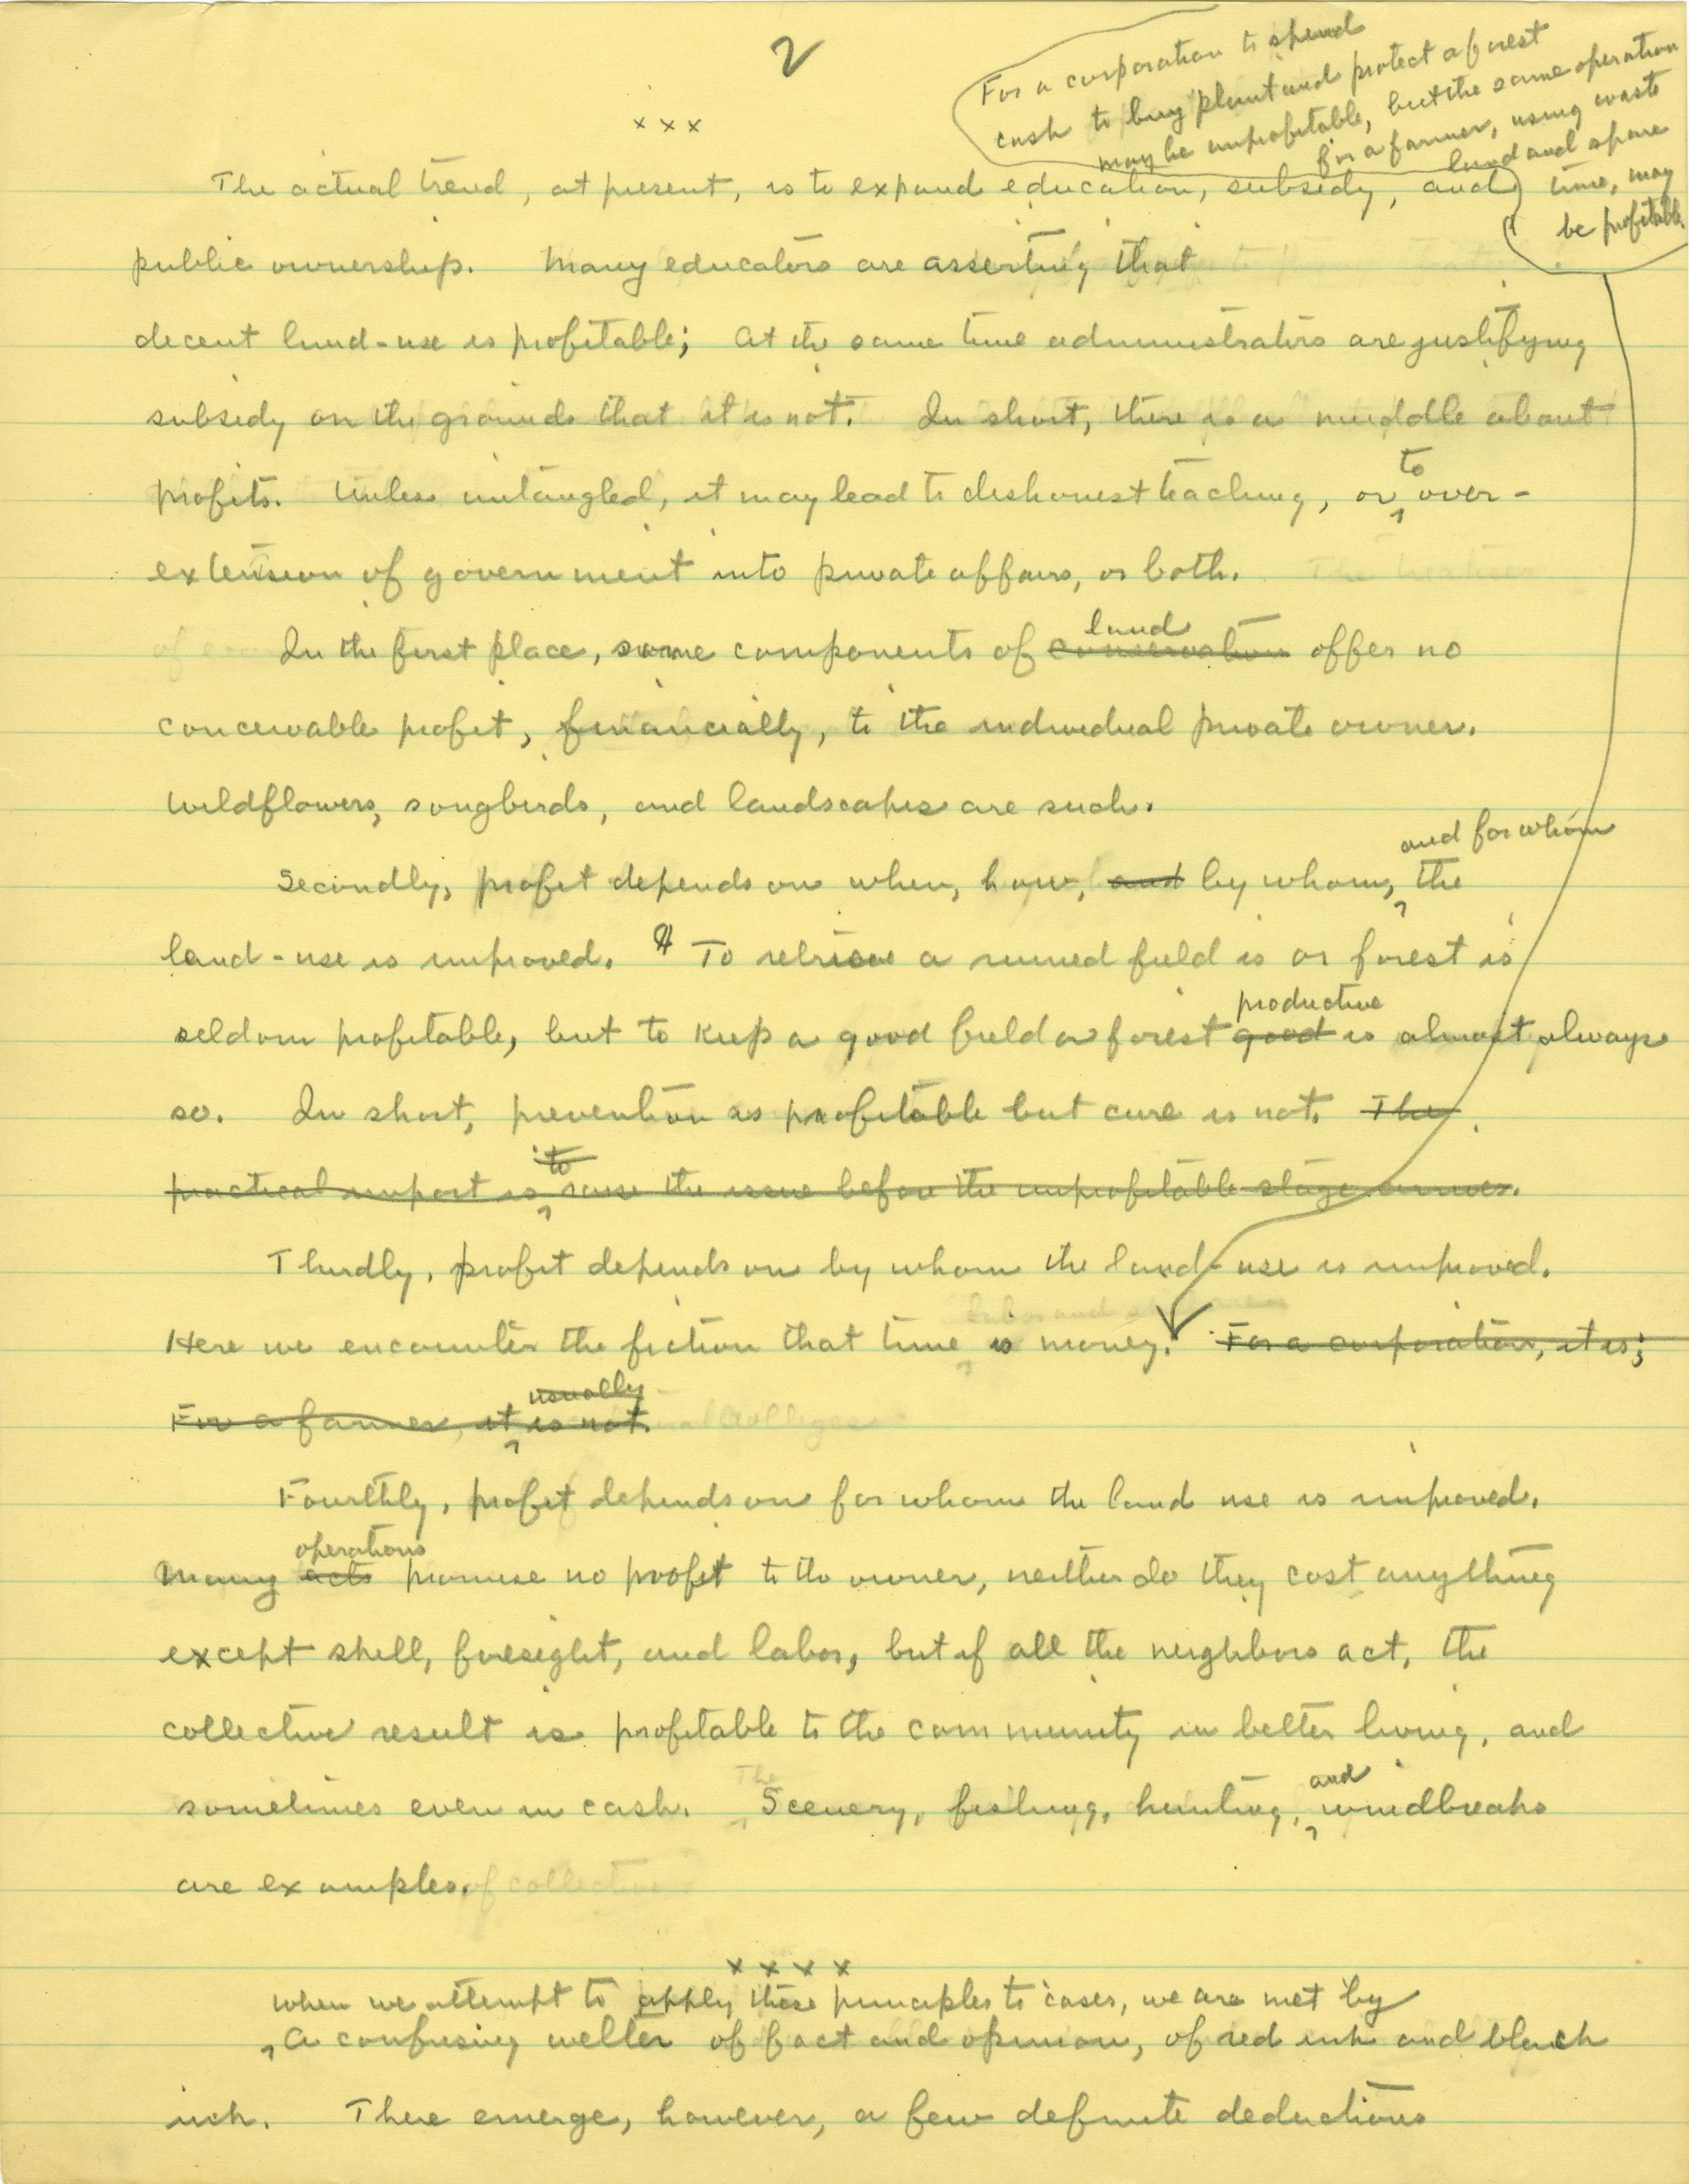 2
For a corporation to spend
cash to buy plant and protect a forest
may be unprofitable, but the same operation
for a farmer, using waste
land and spare
time, may
be profitable
x x x
The actual trend, at present, is to expand education, subsidy, and
public ownership. Many educators are asserting that
decent land-use is profitable; At the same time administrators are justifying
subsidy on the grounds that it is not. In short, there is a muddle about
profits. Unless untangled, it may lead to dishonest teaching, or to over-
extension of government into private affairs, or both.
land
In the first place, some components of conservation offer no
conceivable profit, financially, to the individual private owner.
Wildflowers, songbirds, and landscapes are such.
and for whom
Secondly, profit depends on when, how, and by whom, the
land-use is improved. ¶ To retrieve a ruined field is or forest is
productive
seldom profitable, but to keep a good field or forest good is almost always
so. In short, prevention is profitable but cure is not. The
to
practical import is raise the issue before the unprofitable stage arrives.
Thirdly, profit depends on by whom the land-use is improved.
Here we encounter the fiction that time is money. For a corporation, it is;
usually
For a farmer, it is not.
Fourthly, profit depends on for whom the land use is improved.
operations
Many acts promise no profit to the owner, neither do they cost anything
except skill, foresight, and labor, but if all the neighbors act, the
collective result is profitable to the community in better living, and
and
sometimes even in cash. The Scenery, fishing, hunting, windbreaks
are examples. of collective
x x x x
When we attempt to apply these principles to cases, we are met by
A confusing welter of fact and opinion, of red ink and black
ink. There emerge, however, a few definite deductions